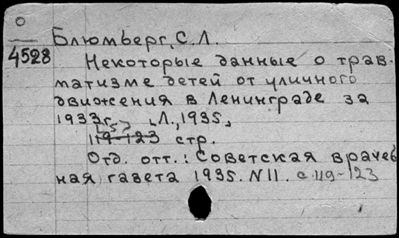 Блюмберг, С.Л.
4528
Некоторые данные о трав-
матизме детей от уличного
движения в Ленинграде за
1933г., Л., 1935,
119-123 стр.
Отд. отт.: Советская врачеб
ная газета 1935. N11. с 119-123